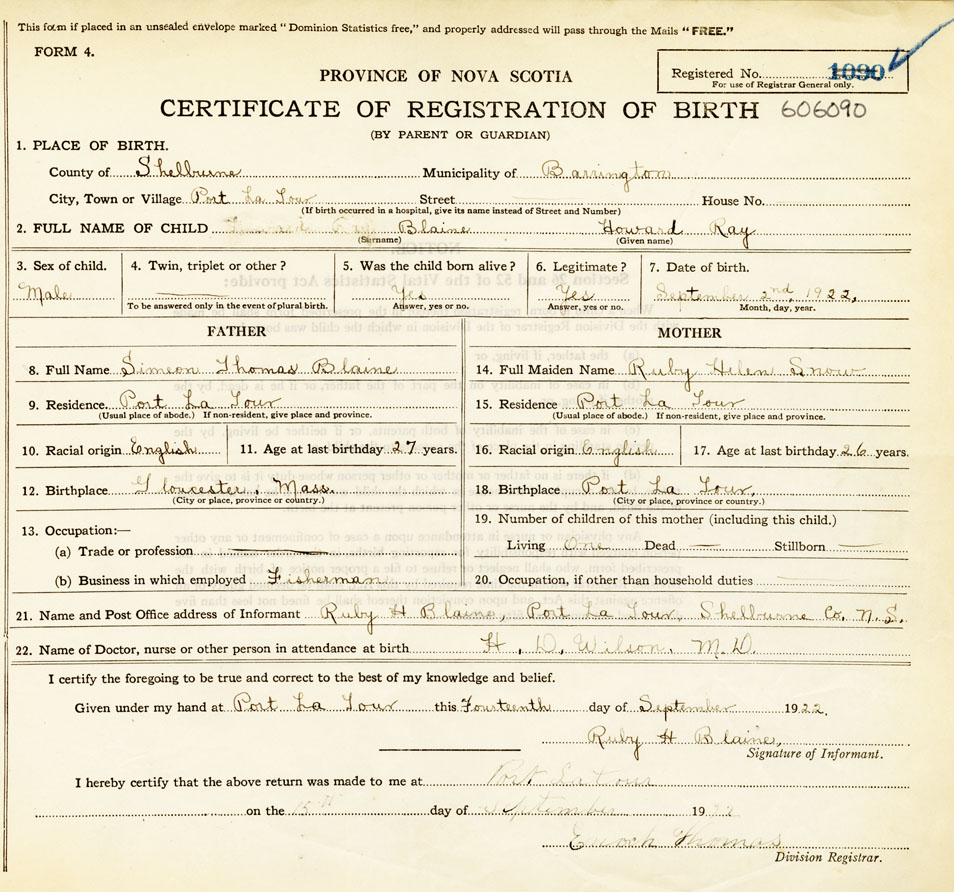 This form if placed in an unsealed envelope marked "Dominion Statistics free," and properly addressed will pass through the Mails "FREE."
FORM 4.
PROVINCE OF NOVA SCOTIA
Registered No. 1090
For use of Registrar General only.
CERTIFICATE OF REGISTRATION OF BIRTH 606090
(BY PARENT OR GUARDIAN)
1. PLACE OF BIRTH.
County of Shelburne Municipality of Barrington
City, Town or Village Port La Tour Street House No.
(If birth occurred in a hospital, give its name instead of Street and Number)
2. FULL NAME OF CHILD Blaine Howard Ray
(Surname) (Given name)
3. Sex of child. 4. Twin, triplet or other? 5. Was the child born alive? 6. Legitimate? 7. Date of birth.
Male Yes Yes September 2nd, 1922,
To be answered only in the event of plural birth. Answer, yes or no. Answer, yes or no. Month, day, year.
FATHER MOTHER
8. Full Name Simeon Thomas Blaine 14. Full Maiden Name Ruby Helen Snow
9. Residence. Port La Tour 15. Residence Port La Tour
(Usual place of abode.) If non-resident, give place and province. (Usual place of abode.) If non-resident, give place and province.
10. Racial origin English 11. Age at last birthday 27 years. 16. Racial origin English 17. Age at last birthday 26 years.
12. Birthplace Gloucester, Mass. 18. Birthplace Port La Tour,
(City or place, province or country.) (City or place, province or country.)
13. Occupation:— 19. Number of children of this mother (including this child.)
(a) Trade or profession Living One Dead — Stillborn —
(b) Business in which employed Fisherman 20. Occupation, if other than household duties
21. Name and Post Office address of Informant Ruby H Blaine, Port La Tour, Shelburne Co. N.S.
22. Name of Doctor, nurse or other person in attendance at birth H. D. Wilson. M.D.
I certify the foregoing to be true and correct to the best of my knowledge and belief.
Given under my hand at Port La Tour this Fourteenth day of September 1922.
Ruby H Blaine,
Signature of Informant.
I hereby certify that the above return was made to me at Port La tour
on the 15th day of September 1922
Enoch Thomas
Division Registrar.